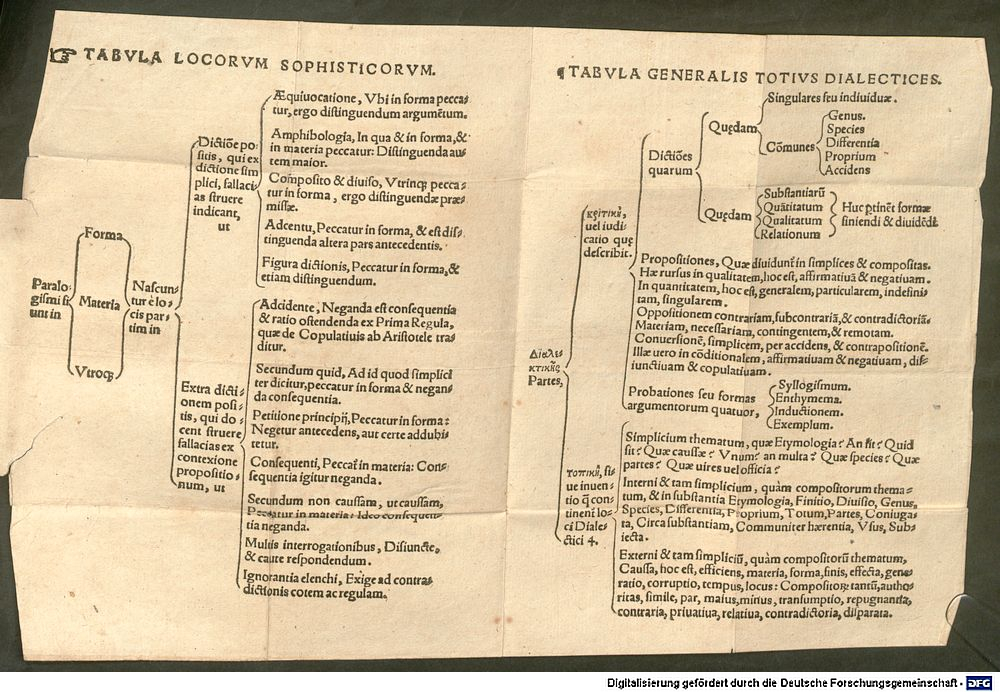 ☞ TABVLA LOCORVM SOPHISTICORVM.
Paralo-
gismi fi-
unt in
Forma
Materia
Vtroq;
Nascun-
tur è lo-
cis par-
tim in
Dictiōe po-
sitis, qui ex
dictione sim
plici, fallaci
as struere
indicant,
ut
Æquiuocatione, Vbi in forma pecca-
tur, ergo distinguendum argumētum.
Amphibologia, In qua & in forma, &
in materia peccatur: Distinguenda au-
tem maior.
Composito & diuiso, Vtrinq; pecca-
tur in forma, ergo distinguendæ præ-
missæ.
Adcentu, Peccatur in forma, & est dis-
tinguenda altera pars antecedentis.
Figura dictionis, Peccatur in forma, &
etiam distinguendum.
Extra dicti-
onem posi-
tis, qui do-
cent struere
fallacias ex
contexione
propositio-
num, ut
Adcidente, Neganda est consequentia
& ratio ostendenda ex Prima Regula,
quæ de Copulatiuis ab Aristotele tra-
ditur.
Secundum quid, Ad id quod simplici
ter dicitur, peccatur in forma & negan-
da consequentia.
Petitione principij, Peccatur in forma:
Negetur antecedens, aut certe addubi-
tetur.
Consequenti, Peccat in materia: Con-
sequentia igitur neganda.
Secundum non caussam, ut caussam,
Peccatur in materia: Ideo consequen-
tia neganda.
Multis interrogationibus, Disiuncte,
& caute respondendum.
Ignorantia elenchi, Exige ad contra-
dictionis cotem ac regulam.
¶TABVLA GENERALIS TOTIVS DIALECTICES.
Διαλε-
κτικῆς
Partes,
κριτικὴ,
uel iudi-
catio quę
describit.
Dictiōes
quarum
Quędam
Singulares seu indiuiduæ.
Cōmunes
Genus.
Species
Differentia
Proprium
Accidens
Quędam
Substantiarū
Quātitatum
Qualitatum
Relationum
Huc ptinēt formæ
finiendi & diuidēdi.
Propositiones, Quæ diuidunt in simplices & compositas.
Hæ rursus in qualitatem, hoc est, affirmatiuā & negatiuam.
In quantitatem, hoc est, generalem, particularem, indefini-
tam, singularem.
Oppositionem contrariam, subcontrariā, & contradictoriā.
Materiam, necessariam, contingentem, & remotam.
Conuersionē, simplicem, per accidens, & contrapositionē.
Illæ uero in cōditionalem, affirmatiuam & negatiuam, dis-
iunctiuam & copulatiuam.
Probationes seu formas
argumentorum quatuor,
Syllogismum.
Enthymema.
Inductionem.
Exemplum.
τοπικὴ, si-
ue inuen-
tio q̄ con-
tinent lo-
ci Diale-
ctici 4.
Simplicium thematum, quæ Etymologia? An sit? Quid
sit? Quæ caussæ? Vnum? an multa? Quæ species? Quæ
partes? Quæ uires uel officia?
Interni & tam simplicium, quàm compositorum thema-
tum, & in substantia Etymologia, Finitio, Diuisio, Genus,
Species, Differentia, Proprium, Totum, Partes, Coniuga-
ta, Circa substantiam, Communiter hærentia, Vsus, Sub-
iecta.
Externi & tam simpliciū, quàm compositorū thematum,
Caussa, hoc est, efficiens, materia, forma, finis, effecta, gene
ratio, corruptio, tempus, locus: Compositorꝝ tantū, autho-
ritas, simile, par, maius, minus, transumptio, repugnantia,
contraria, priuatiua, relatiua, contradictoria, disparata.
Digitalisierung gefördert durch die Deutsche Forschungsgemeinschaft - DFG